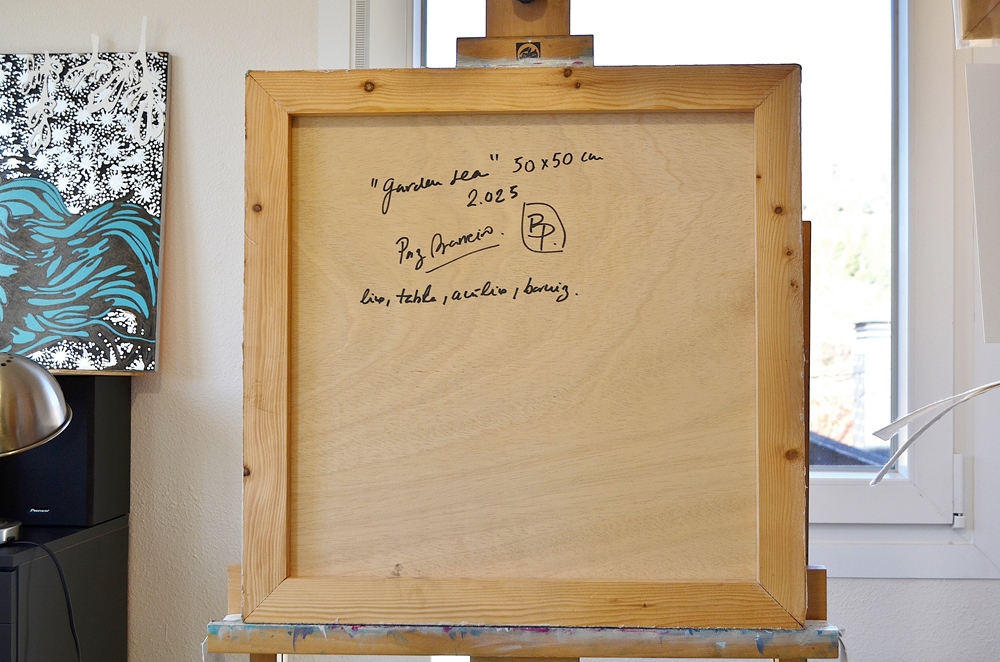 "Garden sea" 50x50 cm
2.025
Paz Barreiro.
BP.
lino, tabla, acrílico, barniz.
Pioneer